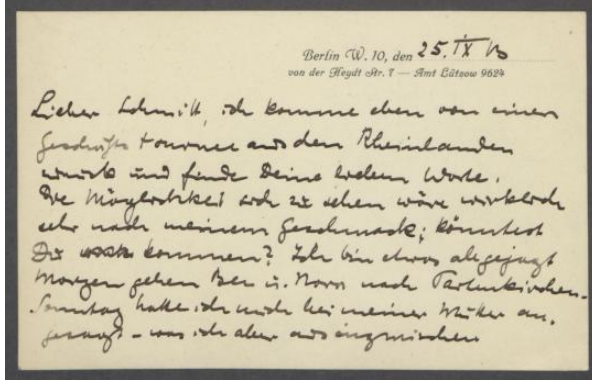 Berlin W. 10, den 25. IX
von der Heydt Str. 7 — Amt Lützow 9624
Lieber Schmitt, ich komme eben von einer
Geschäfts tournee aus den Rheinlanden
zurück und finde Deine lieben Worte.
Die Möglichkei dich zu sehen wäre wirklich
sehr nach meinem Geschmack; könntest
Du kommen? Ich bin etwas abgejagt
Morgen gehen u. Nora nach Partenkirchen-
Sonntag hatte ich mich bei meiner Mutter an.
gesagt - was ich aber inzwischen